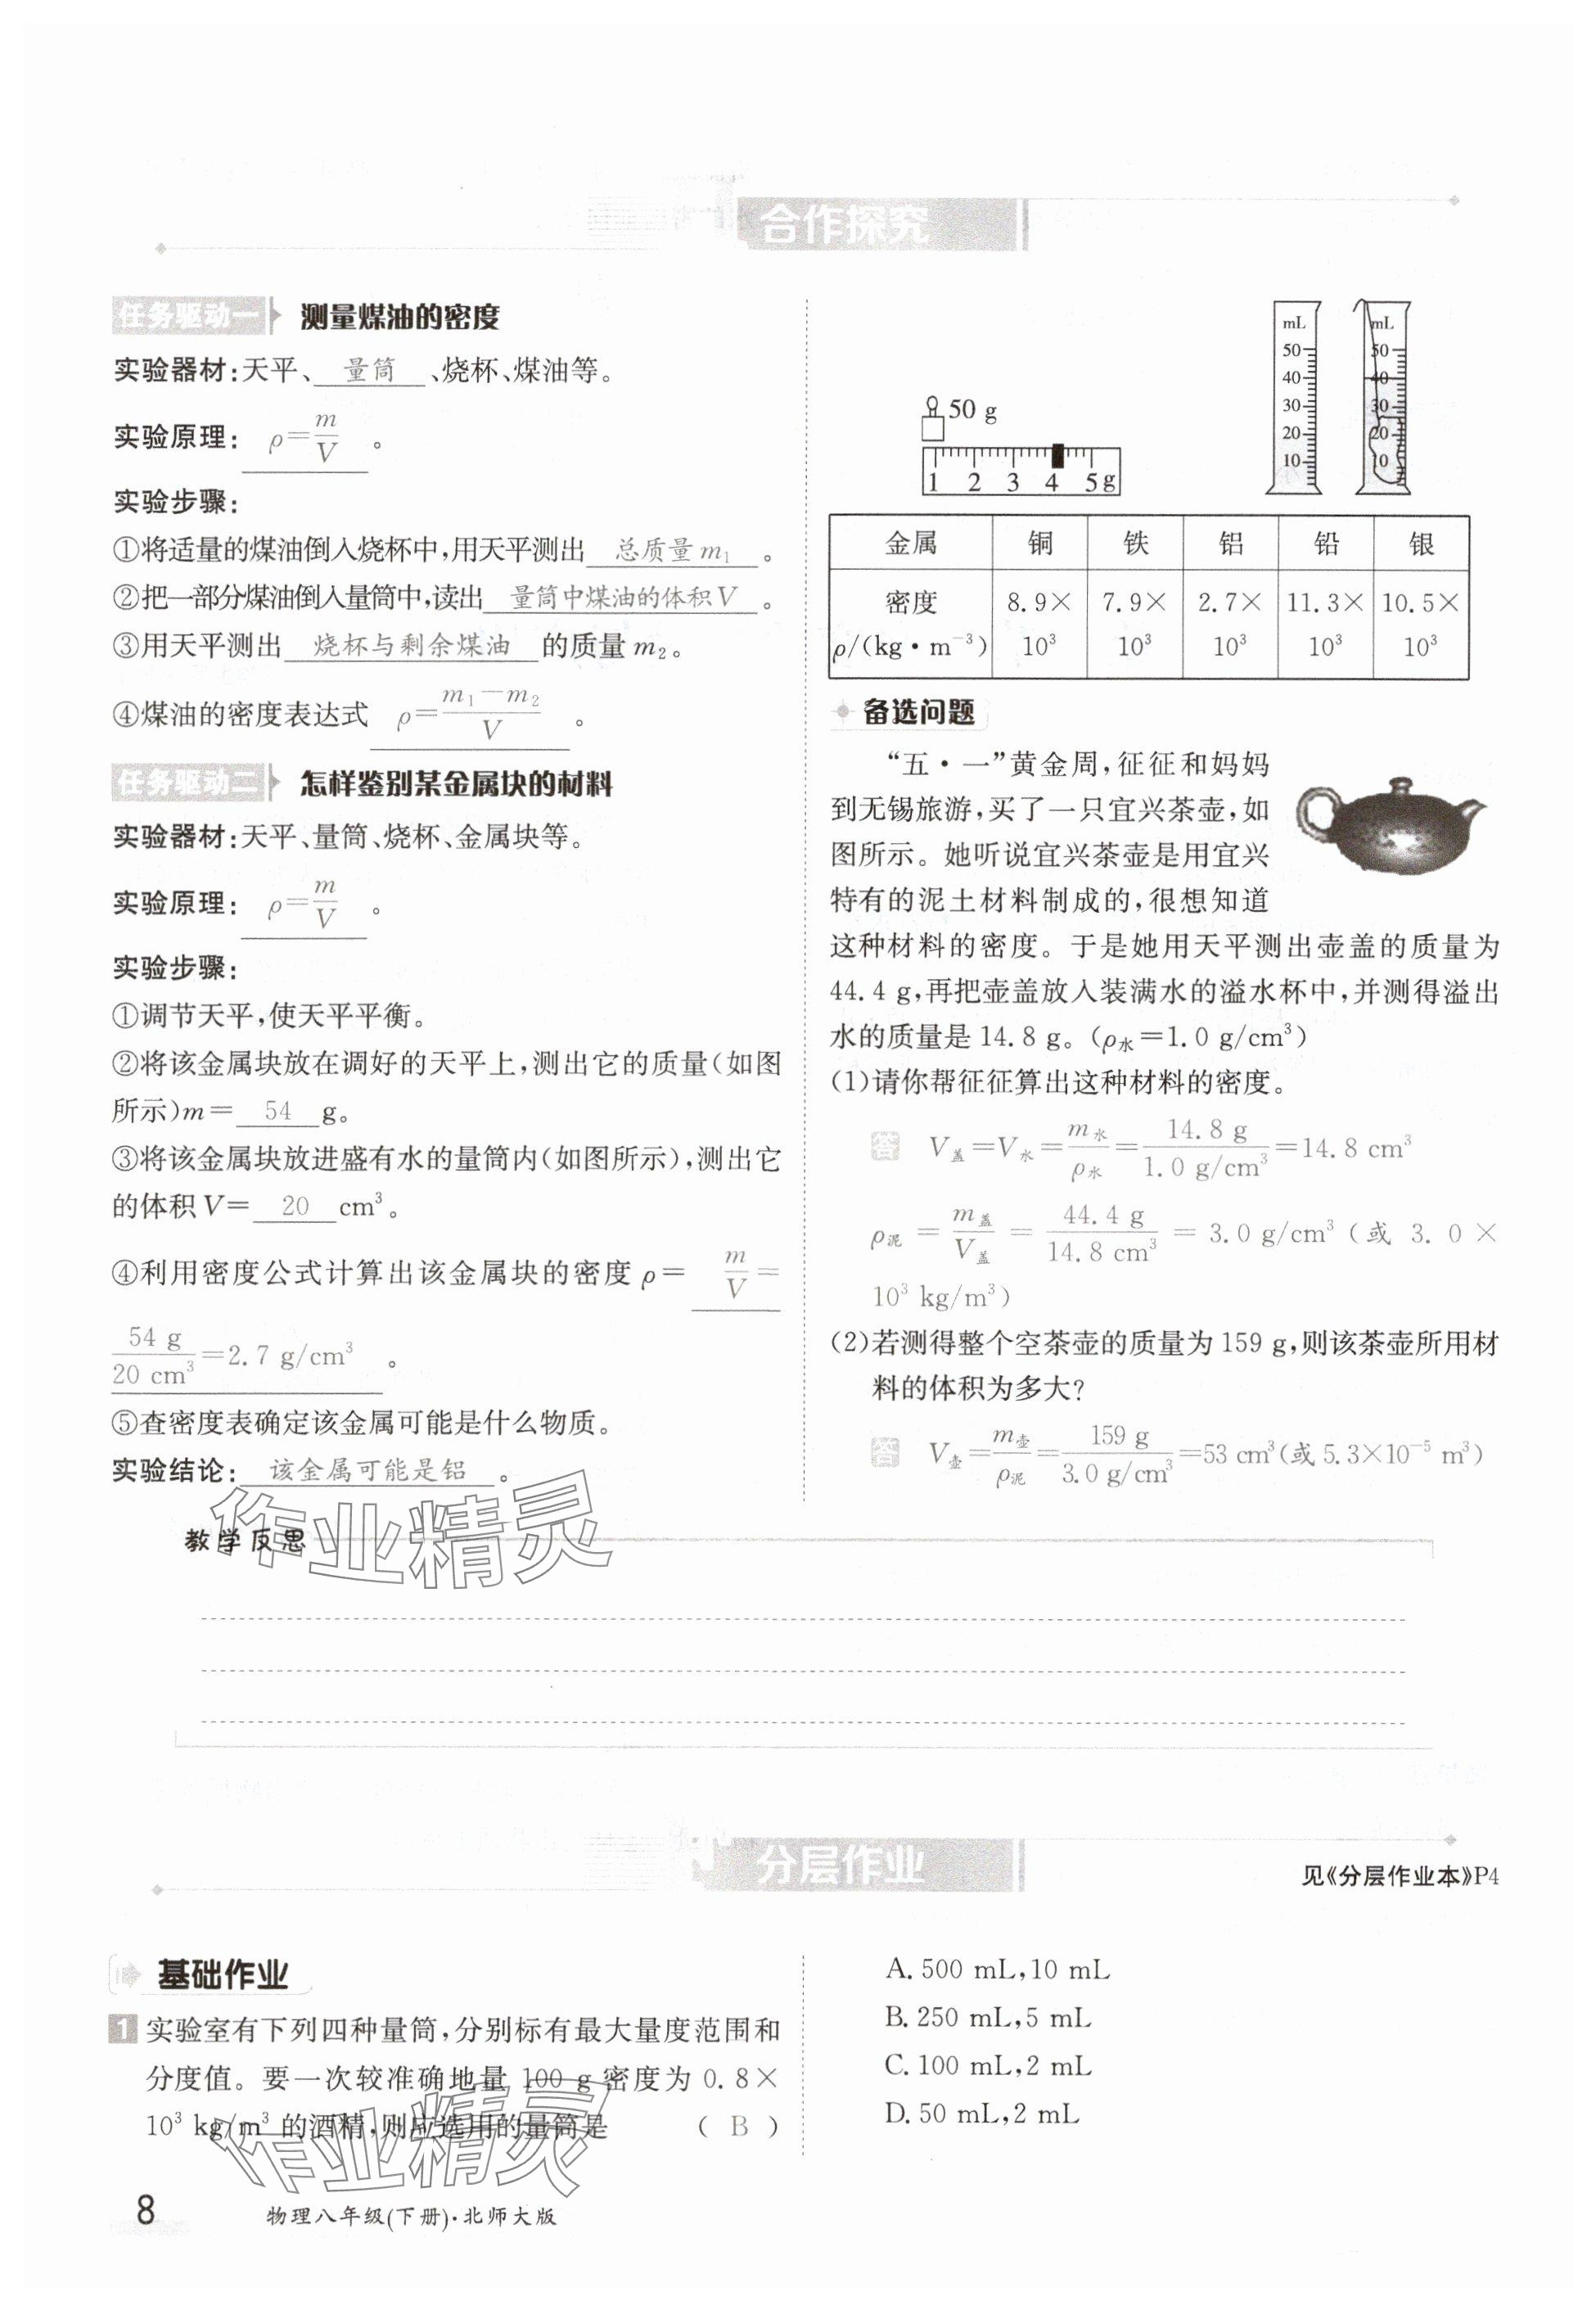 合作探究
任务驱动一 测量煤油的密度
实验器材:天平、量筒、烧杯、煤油等。
实验原理: ρ=m/V 。
实验步骤:
①将适量的煤油倒入烧杯中,用天平测出 总质量 m₁ 。
②把一部分煤油倒入量筒中,读出 量筒中煤油的体积 V 。
③用天平测出 烧杯与剩余煤油 的质量 m₂。
④煤油的密度表达式 ρ=(m₁-m₂)/V 。
任务驱动二 怎样鉴别某金属块的材料
实验器材:天平、量筒、烧杯、金属块等。
实验原理: ρ=m/V 。
实验步骤:
①调节天平,使天平平衡。
②将该金属块放在调好的天平上,测出它的质量(如图
所示)m= 54 g。
③将该金属块放进盛有水的量筒内(如图所示),测出它
的体积 V= 20 cm³。
④利用密度公式计算出该金属块的密度 ρ= m/V =
54 g/20 cm³=2.7 g/cm³ 。
⑤查密度表确定该金属可能是什么物质。
实验结论: 该金属可能是铝 。
50 g
1 2 3 4 5 g
mL
50
40
30
20
10
mL
50
40
30
20
10
金属 铜 铁 铝 铅 银
密度 8.9× 7.9× 2.7× 11.3× 10.5×
ρ/(kg·m⁻³) 10³ 10³ 10³ 10³ 10³
备选问题
“五·一”黄金周,征征和妈妈
到无锡旅游,买了一只宜兴茶壶,如
图所示。她听说宜兴茶壶是用宜兴
特有的泥土材料制成的,很想知道
这种材料的密度。于是她用天平测出壶盖的质量为
44.4 g,再把壶盖放入装满水的溢水杯中,并测得溢出
水的质量是 14.8 g。(ρ水=1.0 g/cm³)
(1)请你帮征征算出这种材料的密度。
答 V盖=V水=m水/ρ水=14.8 g/1.0 g/cm³=14.8 cm³
ρ泥 = m盖/V盖 = 44.4 g/14.8 cm³ = 3.0 g/cm³ (或 3.0 ×
10³ kg/m³)
(2)若测得整个空茶壶的质量为 159 g,则该茶壶所用材
料的体积为多大?
答 V壶=m壶/ρ泥=159 g/3.0 g/cm³=53 cm³(或 5.3×10⁻⁵ m³)
教学反思
作业精灵
分层作业
见《分层作业本》P4
基础作业
1 实验室有下列四种量筒,分别标有最大量度范围和
分度值。要一次较准确地量 100 g 密度为 0.8×
10³ kg/m³ 的酒精,则应选用的量筒是 ( B )
A. 500 mL,10 mL
B. 250 mL,5 mL
C. 100 mL,2 mL
D. 50 mL,2 mL
作业精灵
8 物理八年级(下册)·北师大版